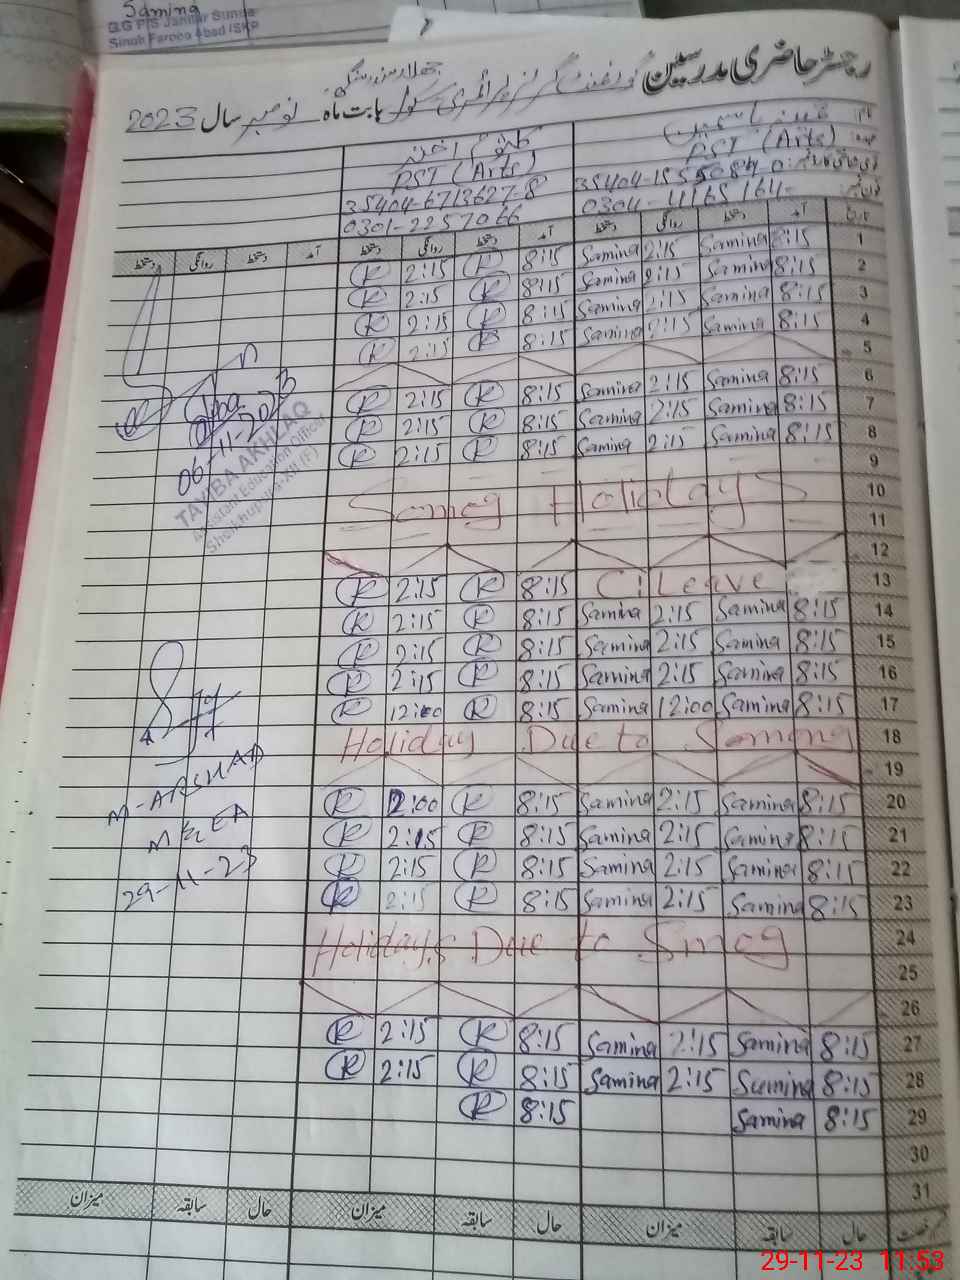 Samina
G.G P/S Janifar Sunda
Sinah Farooq Abad ISKP
رجسٹر حاضری مدرسین گورنمنٹ گرلز پرائمری سکول بابت ماہ نومبر سال 2023
ثمینہ یاسمین کلثوم اختر
PST (Arts) PST (Arts)
35404-6713627-8
0301-2257066 0304-4165164
تاریخ آمد دستخط روانگی دستخط آمد دستخط روانگی دستخط آمد دستخط روانگی دستخط
1 8:15 Samina 2:15 Samina 8:15 K 2:15 K
2 8:15 Samina 2:15 Samina 8:15 K 2:15 K
3 8:15 Samina 2:15 Samina 8:15 K 2:15 K
4 8:15 Samina 2:15 Samina 8:15 K 2:15 K
5
6 8:15 Samina 2:15 Samina 8:15 K 2:15 K
7 8:15 Samina 2:15 Samina 8:15 K 2:15 K
8 8:15 Samina 2:15 Samina 8:15 K 2:15 K
9
10 Samog Holidays
11
12
13 C:Leave 8:15 K 2:15 K
14 8:15 Samina 2:15 Samina 8:15 K 2:15 K
15 8:15 Samina 2:15 Samina 8:15 K 2:15 K
16 8:15 Samina 2:15 Samina 8:15 K 2:15 K
17 8:15 Samina 12:00 Samina 8:15 K 12:00 K
18 Holiday Due to Samog
19
20 8:15 Samina 2:15 Samina 8:15 K 2:00 K
21 8:15 Samina 2:15 Samina 8:15 K 2:15 K
22 8:15 Samina 2:15 Samina 8:15 K 2:15 K
23 8:15 Samina 2:15 Samina 8:15 K 2:15 K
24 Holidays Due to Smog
25
26
27 8:15 Samina 2:15 Samina 8:15 K 2:15 K
28 8:15 Samina 2:15 Samina 8:15 K 2:15 K
29 8:15 Samina 8:15 K
30
31
رخصت حال سابقہ میزان حال سابقہ میزان حال سابقہ میزان
06-11-2023
TAYYBA AKHLAQ
Assistant Education Officer
Sheikhupura-XII (F)
M-ARSHAD
MEA
29-11-23
29-11-23 11:53